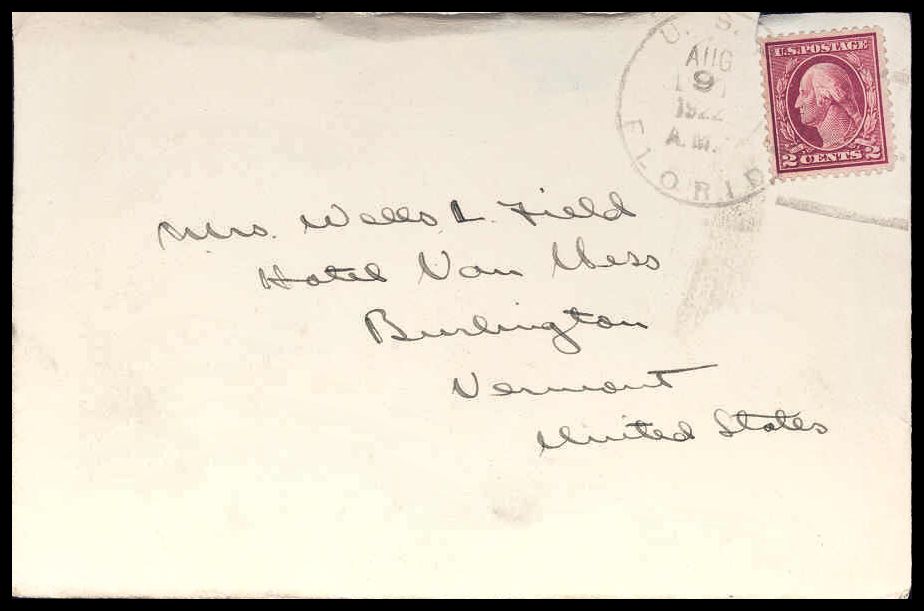 U. S.
AUG
9
1922
A.M.
FLORID
U.S. POSTAGE
2 CENTS 2
Mrs. Wells L. Field
Hotel Van Ness
Burlington
Vermont
United States